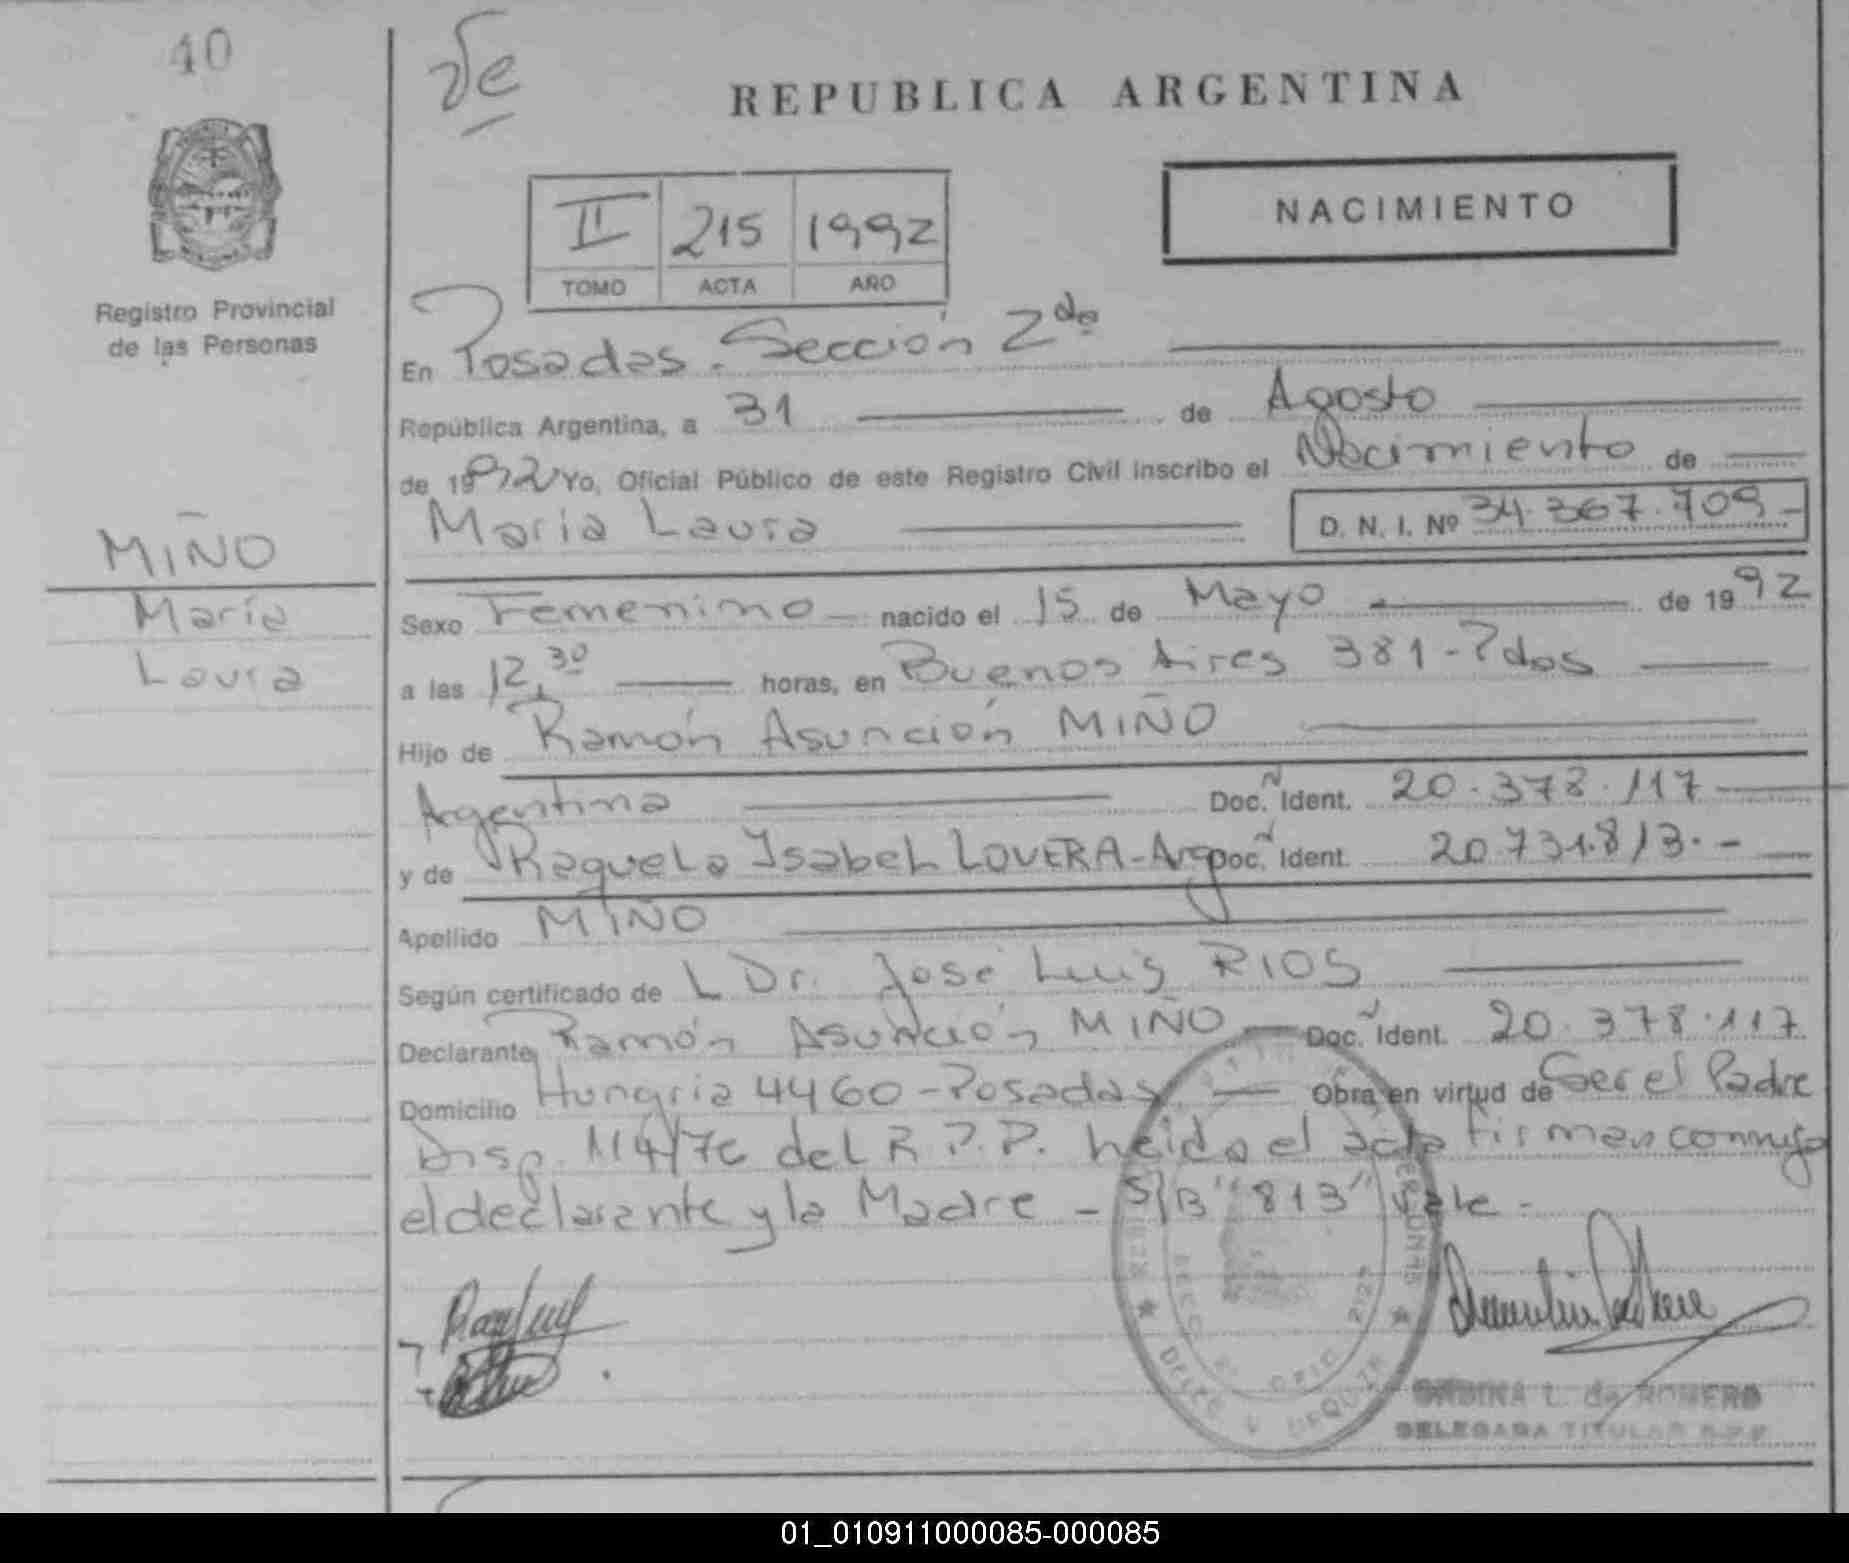 40
REPUBLICA ARGENTINA
NACIMIENTO
II 215 1992
TOMO ACTA AÑO
Registro Provincial
de las Personas
En Posadas. Sección 2da
República Argentina, a 31 de Agosto
de 1992 Yo, Oficial Público de este Registro Civil inscribo el Nacimiento de
María Laura D. N. I. Nº 34.367.709-
MIÑO
María
Laura
Sexo Femenino nacido el 15 de Mayo de 1992
a las 12,30 horas, en Buenos Aires 381-Pdas
Hijo de Ramón Asunción MIÑO
Argentina Doc. Ident. 20.378.117
y de Raquela Isabel LOVERA-Arg Doc. Ident. 20.731.813.-
Apellido MIÑO
Según certificado de L Dr. José Luis RIOS
Declarante Ramón Asunción MIÑO Doc. Ident. 20.378.117
Domicilio Hungria 4460-Posadas Obra en virtud de Ser el Padre
Disp. 114/76 del R.P.P. Leida el acta firman conmigo
el declarante y la Madre - S/B "813" Vale -
L. de ROMERO
DELEGADA TITULAR R.P.P.
01_010911000085-000085